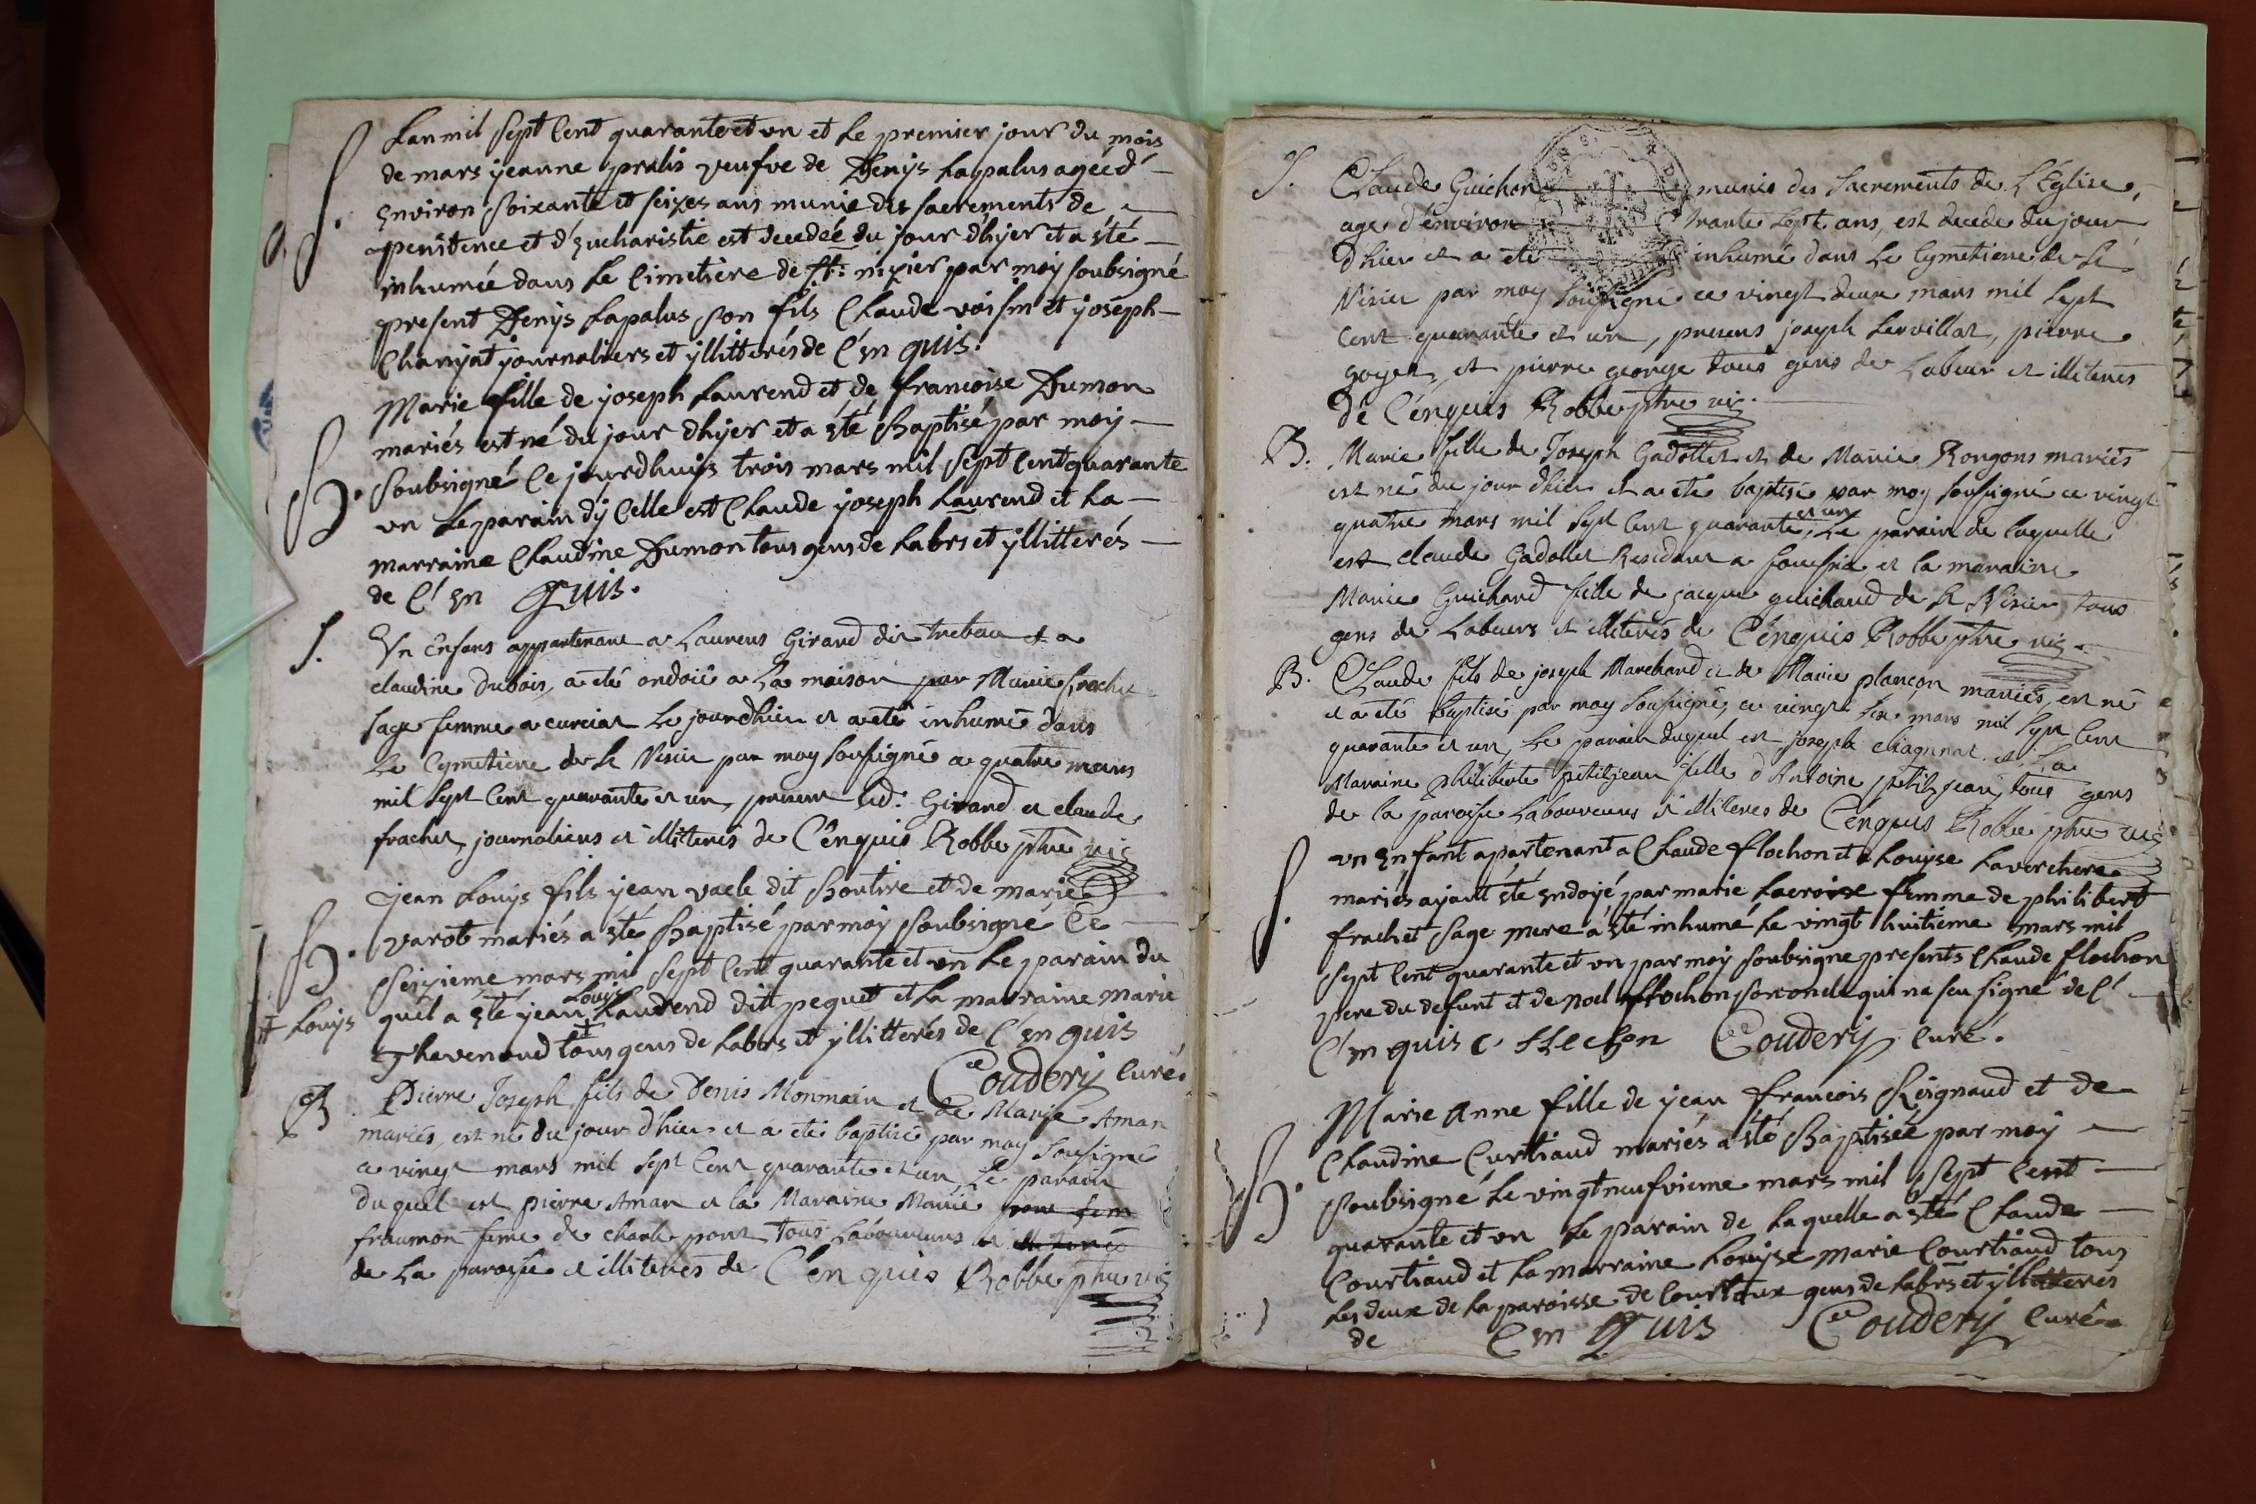 S. Lan mil sept cent quarante et un et le premier jour du mois
de mars jeanne pralis veufve de Denys Lapalus agée d'
environ soixante et seizes ans munie des sacrements de
penitence et d'eucharistie est decedée du jour dhyer et a été
inhumée dans le cimetière de St: nizier par moy soubsigné
present Denys Lapalus son fils Claude voisin et joseph
Charyat journaliers et yllitterés de C'en quis.
Marie fille de joseph Laurend et de francoise Dumon
mariés est né du jour dhyer et a été Baptisé par moy
B. soubsigné ce jourdhuis trois mars mil sept cent quarante
un le parain dy celle est Claude joseph Laurend et la
marraine Claudine Dumon tous gens de labrs et yllitterés
de C' en quis.
S. Un enfans appartenant a Laurens Girard dit trebau et a
claudine dubois, a eté ondoié a la maison par Marie frachet
sage femme a curciat le jour d'hier et a eté inhumé dans
le Cymetiere de St Nisier par moy soussigné ce quatre mars
mil sept cent quarante et un, present led: Girard et claude
frachet, journaliers et illiterés de C'enquis Robbe ptre vic
jean Louys fils jean vaele dit Boutire et de marie
B. varot mariés a été Baptisé par moy soubsigné ce
seizieme mars mil sept cent quarante et un le parain du
quel a été jean Louys Laurend dit pequet et la marraine marie
‡ Louys
Thevenaud tous gens de labrs et yllitterés de C'en quis
Coudery curé.
B. Pierre Joseph fils de Denis Monmain et de Marie Aman
mariés, est né du jour d'hier et a eté baptisé par moy sousigné
ce vingt mars mil sept cent quarante et un, le parain
duquel est pierre Aman et la Maraine Marie
fraumon feme de charle pont tous laboureurs et
de la paroisse et illiterés de C'en quis Robbe ptre vic
S. Claude Guichon munis des sacrements de L'Eglise,
age d'environ trante sept ans, est decede du jour
d'hier et a eté inhumé dans le Cymetiere de St
Nisier par moy soussigné ce vingt deux mars mil sept
cent quarante et un, presens joseph Lervillat, pierre
goyet, et pierre george tous gens de labeur et illiterés
de C'enquis Robbe ptre vic.
B. Marie fille de Joseph Gadollet et de Marie Rongons mariés
est né du jour d'hier et a eté baptisé par moy soussigné ce vingt
quatre mars mil sept cent quarante et un, le parain de laquelle
est claude Gadollet Residant a foussia et la maraine
Marie Guichard fille de jacque guichard de St Nisier tous
gens de labeurs et illiterés de C'enquis Robbe ptre vic.
B. Claude fils de joseph Marchand et de Marie plançon mariés, est né
et a eté baptisé par moy soussigné, ce vingt six mars mil sept cent
quarante et un, le parain duquel est joseph chagnat et la
Maraine philiberte petitjean fille d'Antoine petitjean, tous gens
de la paroisse laboureurs et illiteres de C'enquis Robbe ptre vic
un enfant apartenant a Claude flochon et a Louyse Laverchere
S. mariés ajant été endoyé par marie Lacroise femme de philibert
frachet sage mere a été inhumé le vingt huitieme mars mil
sept cent quarante et un par moy soubsigne presents Claude flochon
pere du defunt et de noel flochon son oncle qui na seu signé de C'
C'en quis c flechon Coudery curé.
Marie Anne fille de jean francois Reignaud et de
Claudine Curtiaud mariés a été Baptisée par moy
B. soubsigné le vingt neufvieme mars mil sept cent
quarante et un le parain de laquelle a été Claude
Courtiaud et la marraine Louyse marie Courtiaud tous
les deux de la paroisse de Courtoux gens de labrs et yllitterés
de C en quis Coudery curé